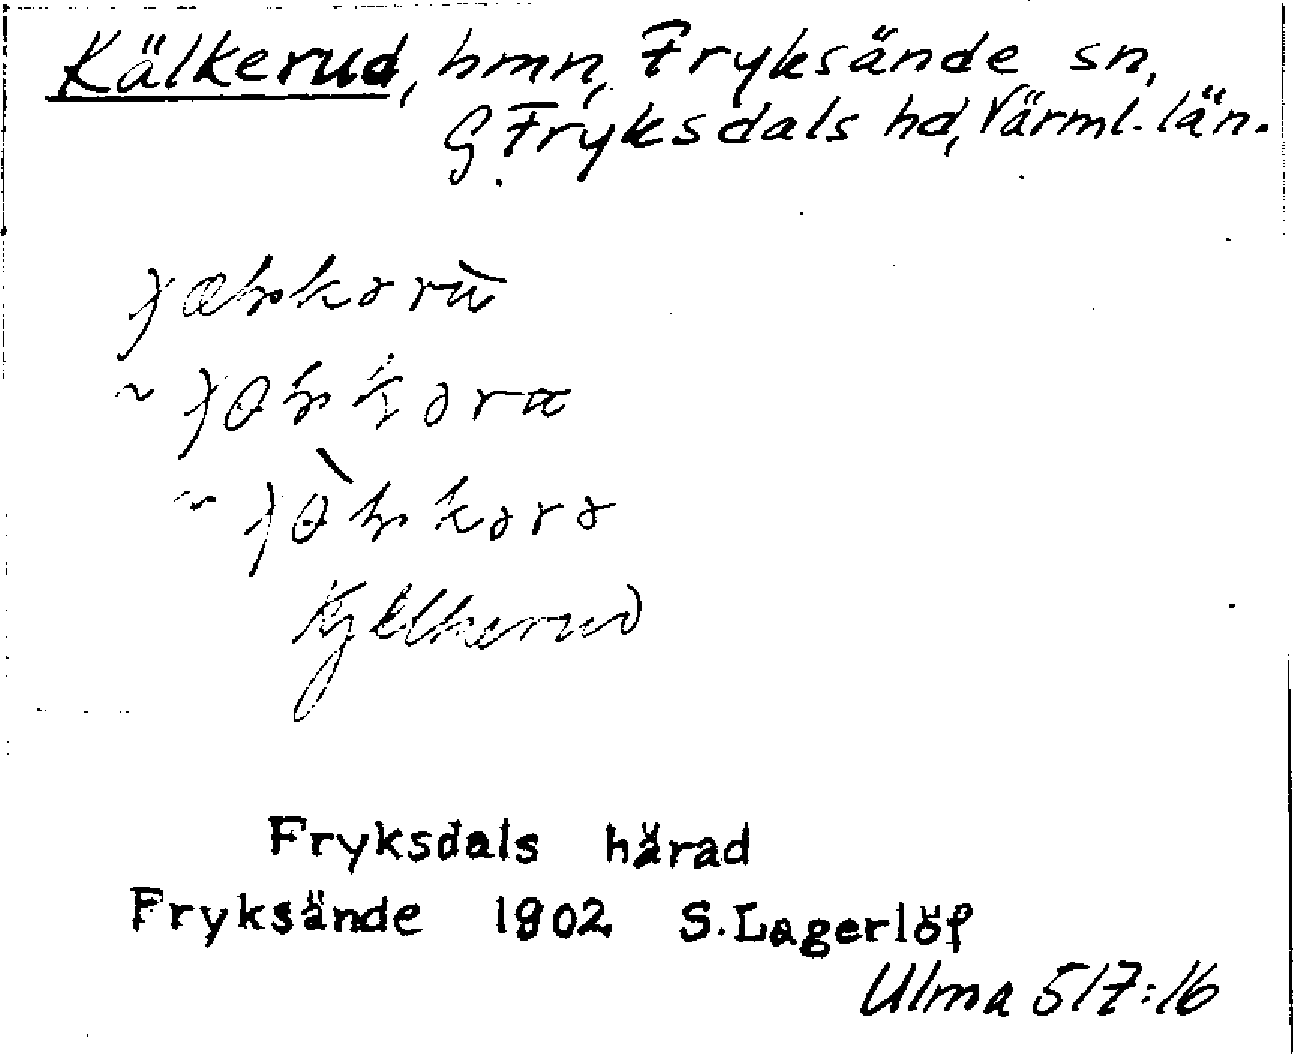 Kälkerud, hmn, Fryksände sn,
G. Fryksdals hd, Värml. län.
Kjelkerud
Fryksdals härad
Fryksände 1902 S. Lagerlöf
Ulma 517:16